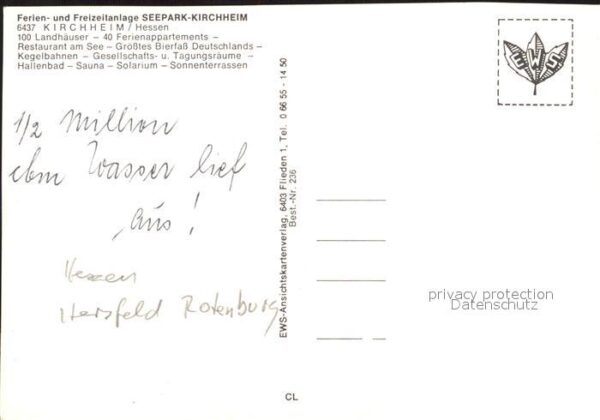 Ferien- und Freizeitanlage SEEPARK-KIRCHHEIM
6437 KIRCHHEIM/Hessen
100 Landhäuser – 40 Ferienappartements –
Restaurant am See – Größtes Bierfaß Deutschlands –
Kegelbahnen – Gesellschafts- u. Tagungsräume –
Hallenbad – Sauna – Solarium – Sonnenterrassen
1/2 Million
cbm Wasser lief
aus!
Hessen
Hersfeld Rotenburg
EWS-Ansichtskartenverlag, 6403 Flieden 1, Tel. 0 66 55 - 14 50
Best.-Nr. 236
EWS
privacy protection
Datenschutz
CL